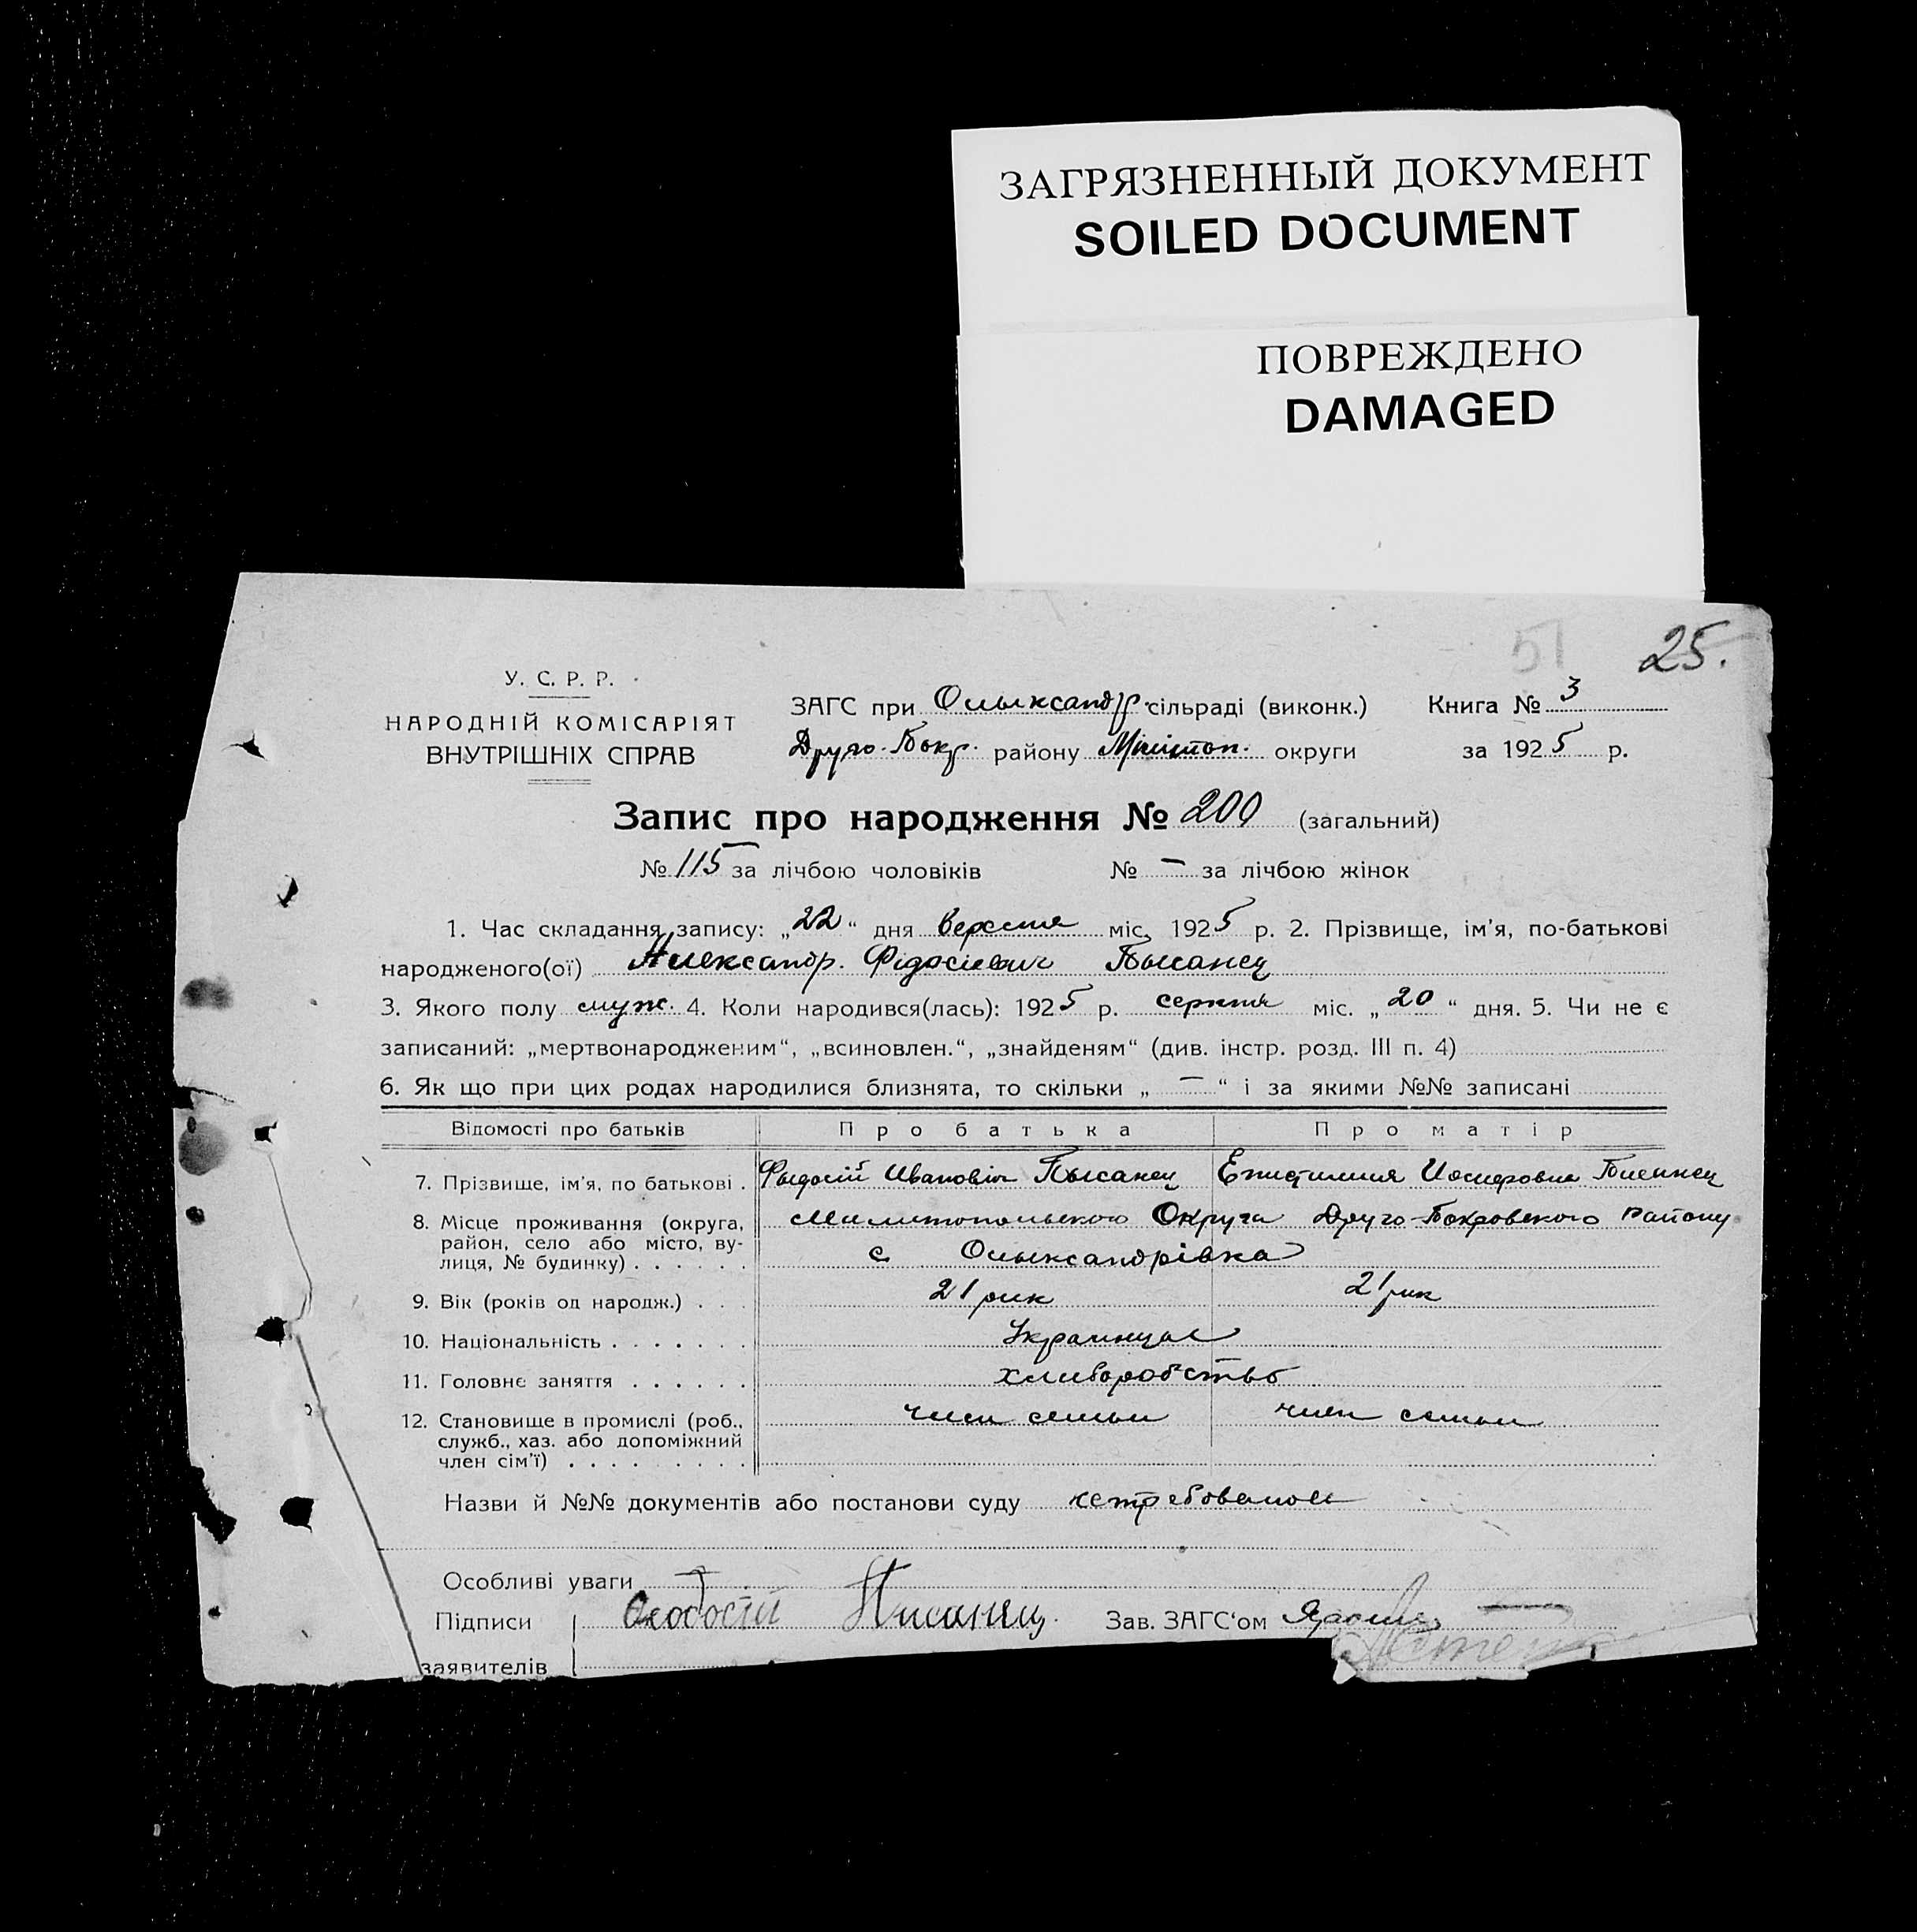 ЗАГРЯЗНЕННЫЙ ДОКУМЕНТ
SOILED DOCUMENT
ПОВРЕЖДЕНО
DAMAGED
51 25.
У. С. Р. Р.
НАРОДНІЙ КОМІСАРІЯТ
ВНУТРІШНІХ СПРАВ
ЗАГС при Олыксандр. сільраді (виконк.) Книга № 3
Друго-Покр. району Мілітоп. округи за 1925 р.
Запис про народження № 200 (загальний)
№ 115 за лічбою чоловіків № – за лічбою жінок
1. Час складання запису: „22“ дня Верссня міс. 1925 р. 2. Прізвище, ім'я, по-батькові
народженого(ої) Александр. Фідосиевич Пысанец
3. Якого полу муж. 4. Коли народився(лась): 1925 р. серпня міс. „20“ дня. 5. Чи не є
записаний: „мертвонародженим“, „всиновлен.“, „знайденям“ (див. інстр. розд. III п. 4)
6. Як що при цих родах народилися близнята, то скільки „ – “ і за якими №№ записані
Відомості про батьків Про батька Про матір
7. Прізвище, ім'я, по батькові . Фыдосій Иванович Пысанец Епистимия Иосифовна Писанец
8. Місце проживання (округа, район, село або місто, вулиця, № будинку) . . . . . . Милитопольскою Округа Друго-Покровского Району
с Олыксандрівка
9. Вік (років од народж.) . . . 21 рик 21 рик
10. Національність . . . . . . . Украинцы
11. Головне заняття . . . . . . хлиборобство
12. Становище в промислі (роб., служб., хаз. або допоміжний член сім'ї) . . . . . . . . . член семьи член семьи
Назви й №№ документів або постанови суду нетребовалось
Особливі уваги
Підписи Писанец. Зав. ЗАГС'ом
заявителів